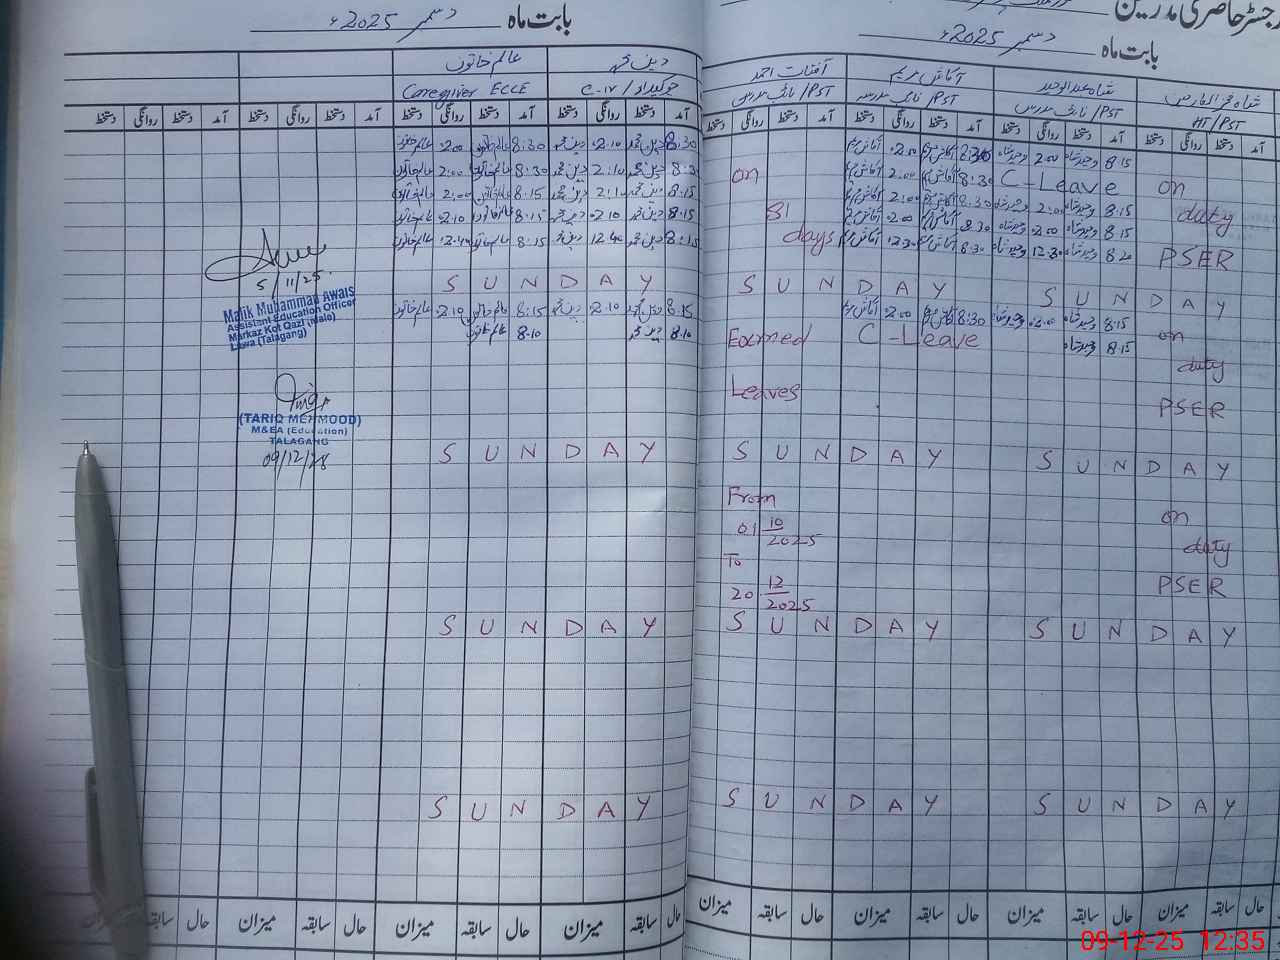 رجسٹر حاضری مدرسین
بابت ماہ دسمبر 2025ء
شاہ فخر العارض
شاہ عبدالوحید
آفتاب احمد
HT/PST
نائب مدرس/PST
نائب مدرسہ/PST
نائب مدرس/PST
آمد دستخط روانگی دستخط آمد دستخط روانگی دستخط آمد دستخط روانگی دستخط آمد دستخط روانگی دستخط
8:15 2:00 8:30 2:00
on C-Leave 8:30 2:00 on
duty 8:15 2:00 8:30 2:00 31
8:15 2:00 8:30 2:00
PSER 8:20 12:30 8:30 12:30 days
S U N D A Y S U N D A Y
8:15 2:00 8:30 2:00
on 8:15 C-Leave Earned
duty
PSER Leaves
S U N D A Y S U N D A Y
From
on 01 10/2025
duty To
PSER 20 12/2025
S U N D A Y S U N D A Y
S U N D A Y S U N D A Y
حال سابقہ میزان حال سابقہ میزان حال سابقہ میزان حال سابقہ میزان
بابت ماہ دسمبر 2025ء
دین محمد عالم خاتون
چوکیدار/C-IV Caregiver ECCE
آمد دستخط روانگی دستخط آمد دستخط روانگی دستخط آمد دستخط روانگی دستخط آمد دستخط روانگی دستخط
8:30 دین محمد 2:10 دین محمد 8:30 عالم خاتون 2:00 عالم خاتون
8:30 دین محمد 2:10 دین محمد 8:30 عالم خاتون 2:00 عالم خاتون
8:15 دین محمد 2:10 دین محمد 8:15 عالم خاتون 2:00 عالم خاتون
8:15 دین محمد 2:10 دین محمد 8:15 عالم خاتون 2:10 عالم خاتون
8:15 دین محمد 12:40 دین محمد 8:15 عالم خاتون 12:40 عالم خاتون
S U N D A Y
8:15 دین محمد 2:10 دین محمد 8:15 عالم خاتون 2:10 عالم خاتون
8:10 دین محمد 8:10 عالم خاتون
S U N D A Y
S U N D A Y
S U N D A Y
5/11/25
Malik Muhammad Awais
Assistant Education Officer
Markaz Kot Qazi (Male)
Lawa (Talagang)
(TARIQ MEHMOOD)
M&EA (Education)
TALAGANG
09/12/28
حال سابقہ میزان حال سابقہ میزان حال سابقہ میزان حال سابقہ میزان
09-12-25 12:35